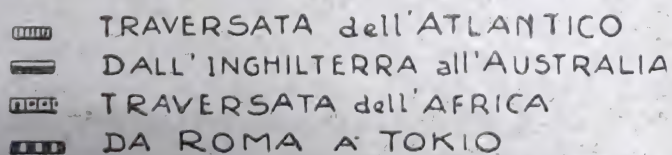 TRAVERSATA dell'ATLANTICO
DALL'INGHILTERRA all'AUSTRALIA
TRAVERSATA dell'AFRICA
DA ROMA A TOKIO